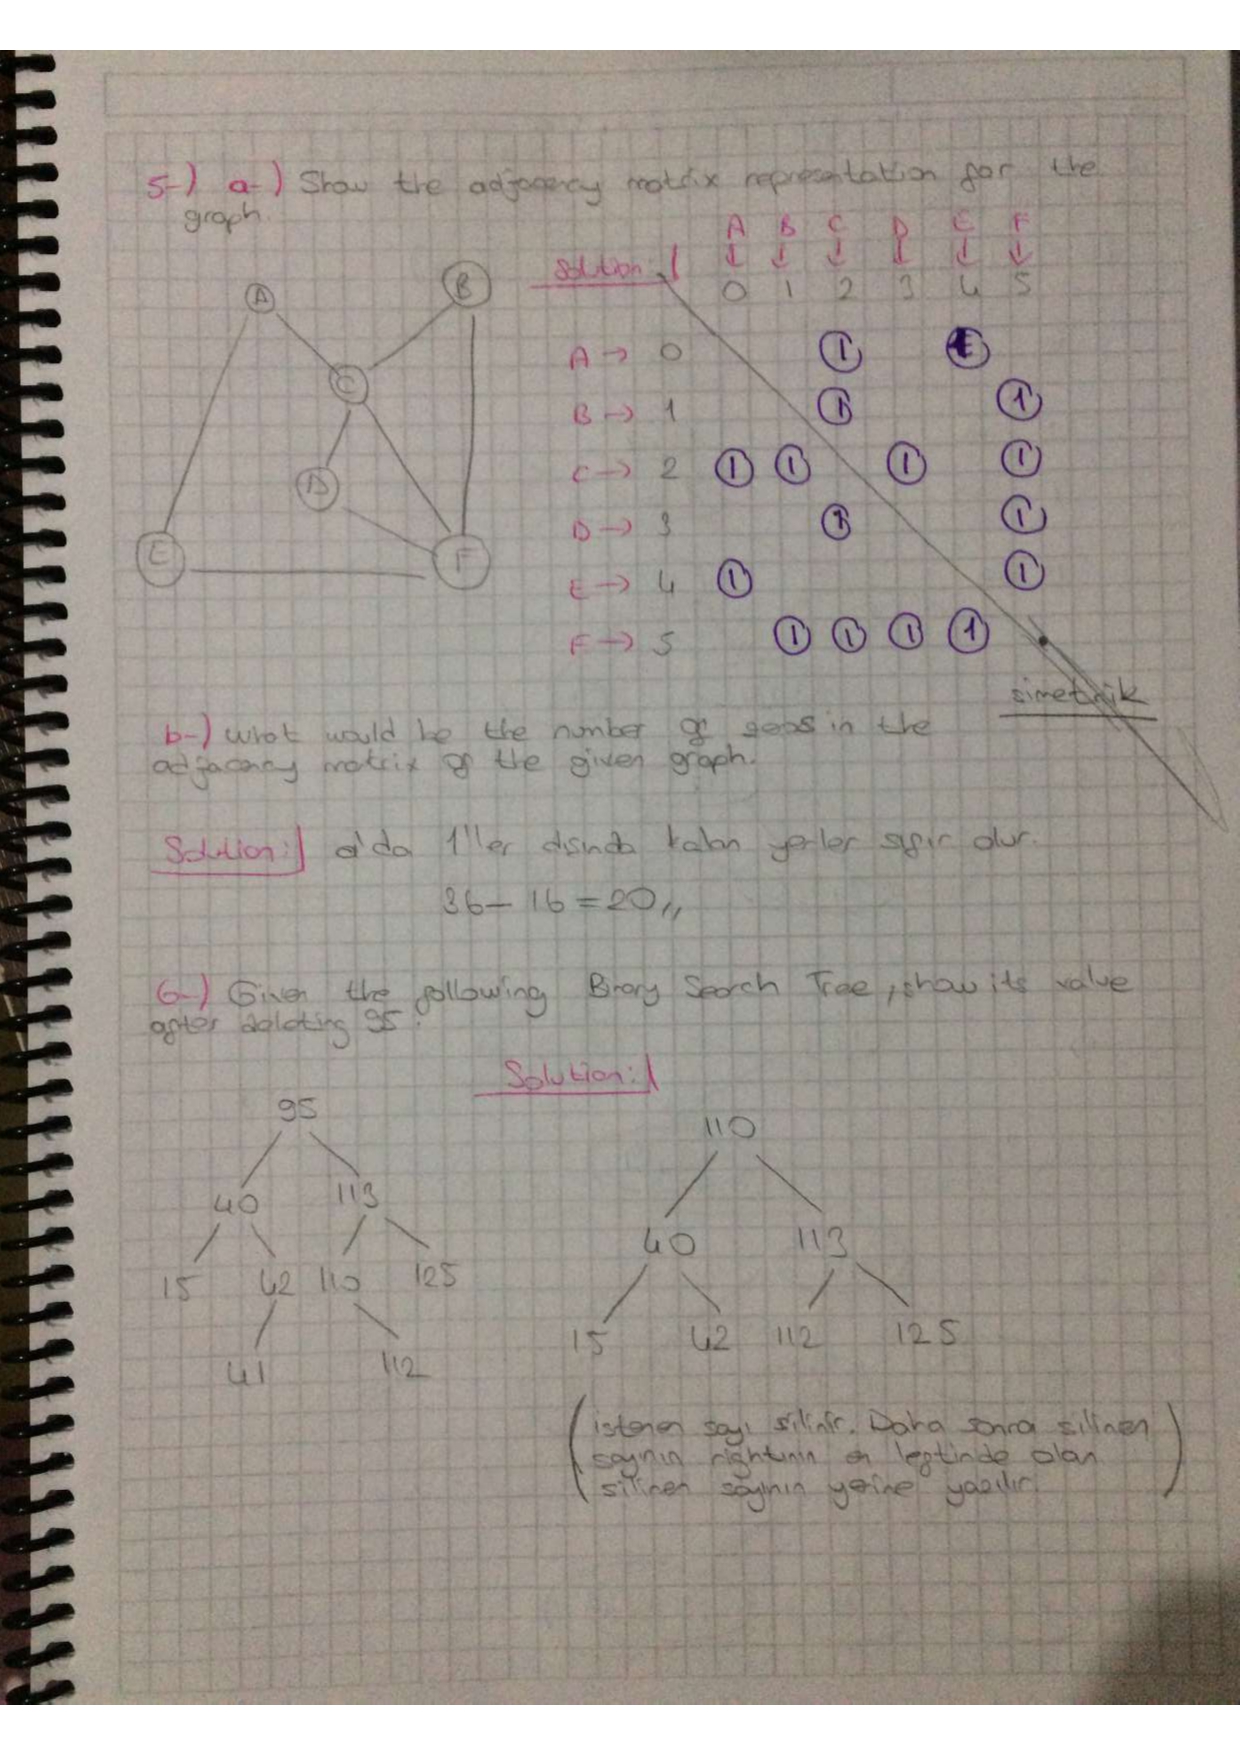 5-) a-) Show the adjacency matrix representation for the
graph.
A B C D E F
Solution:
0 1 2 3 4 5
A B C D E F
A → 0 1 1
B → 1 1 1
C → 2 1 1 1 1
D → 3 1 1
E → 4 1 1
F → 5 1 1 1 1
simetrik
b-) What would be the number of zeros in the
adjacency matrix of the given graph.
Solution: a'da 1'ler dışında kalan yerler sıfır olur.
36 - 16 = 20,,
6-) Given the following Binary Search Tree, show its value
after deleting 95.
Solution:
95
40 113
15 42 110 125
41 112
110
40 113
15 42 112 125
(istenen sayı silinir. Daha sonra silinen
sayının rightının en leftinde olan
silinen sayının yerine yazılır.)